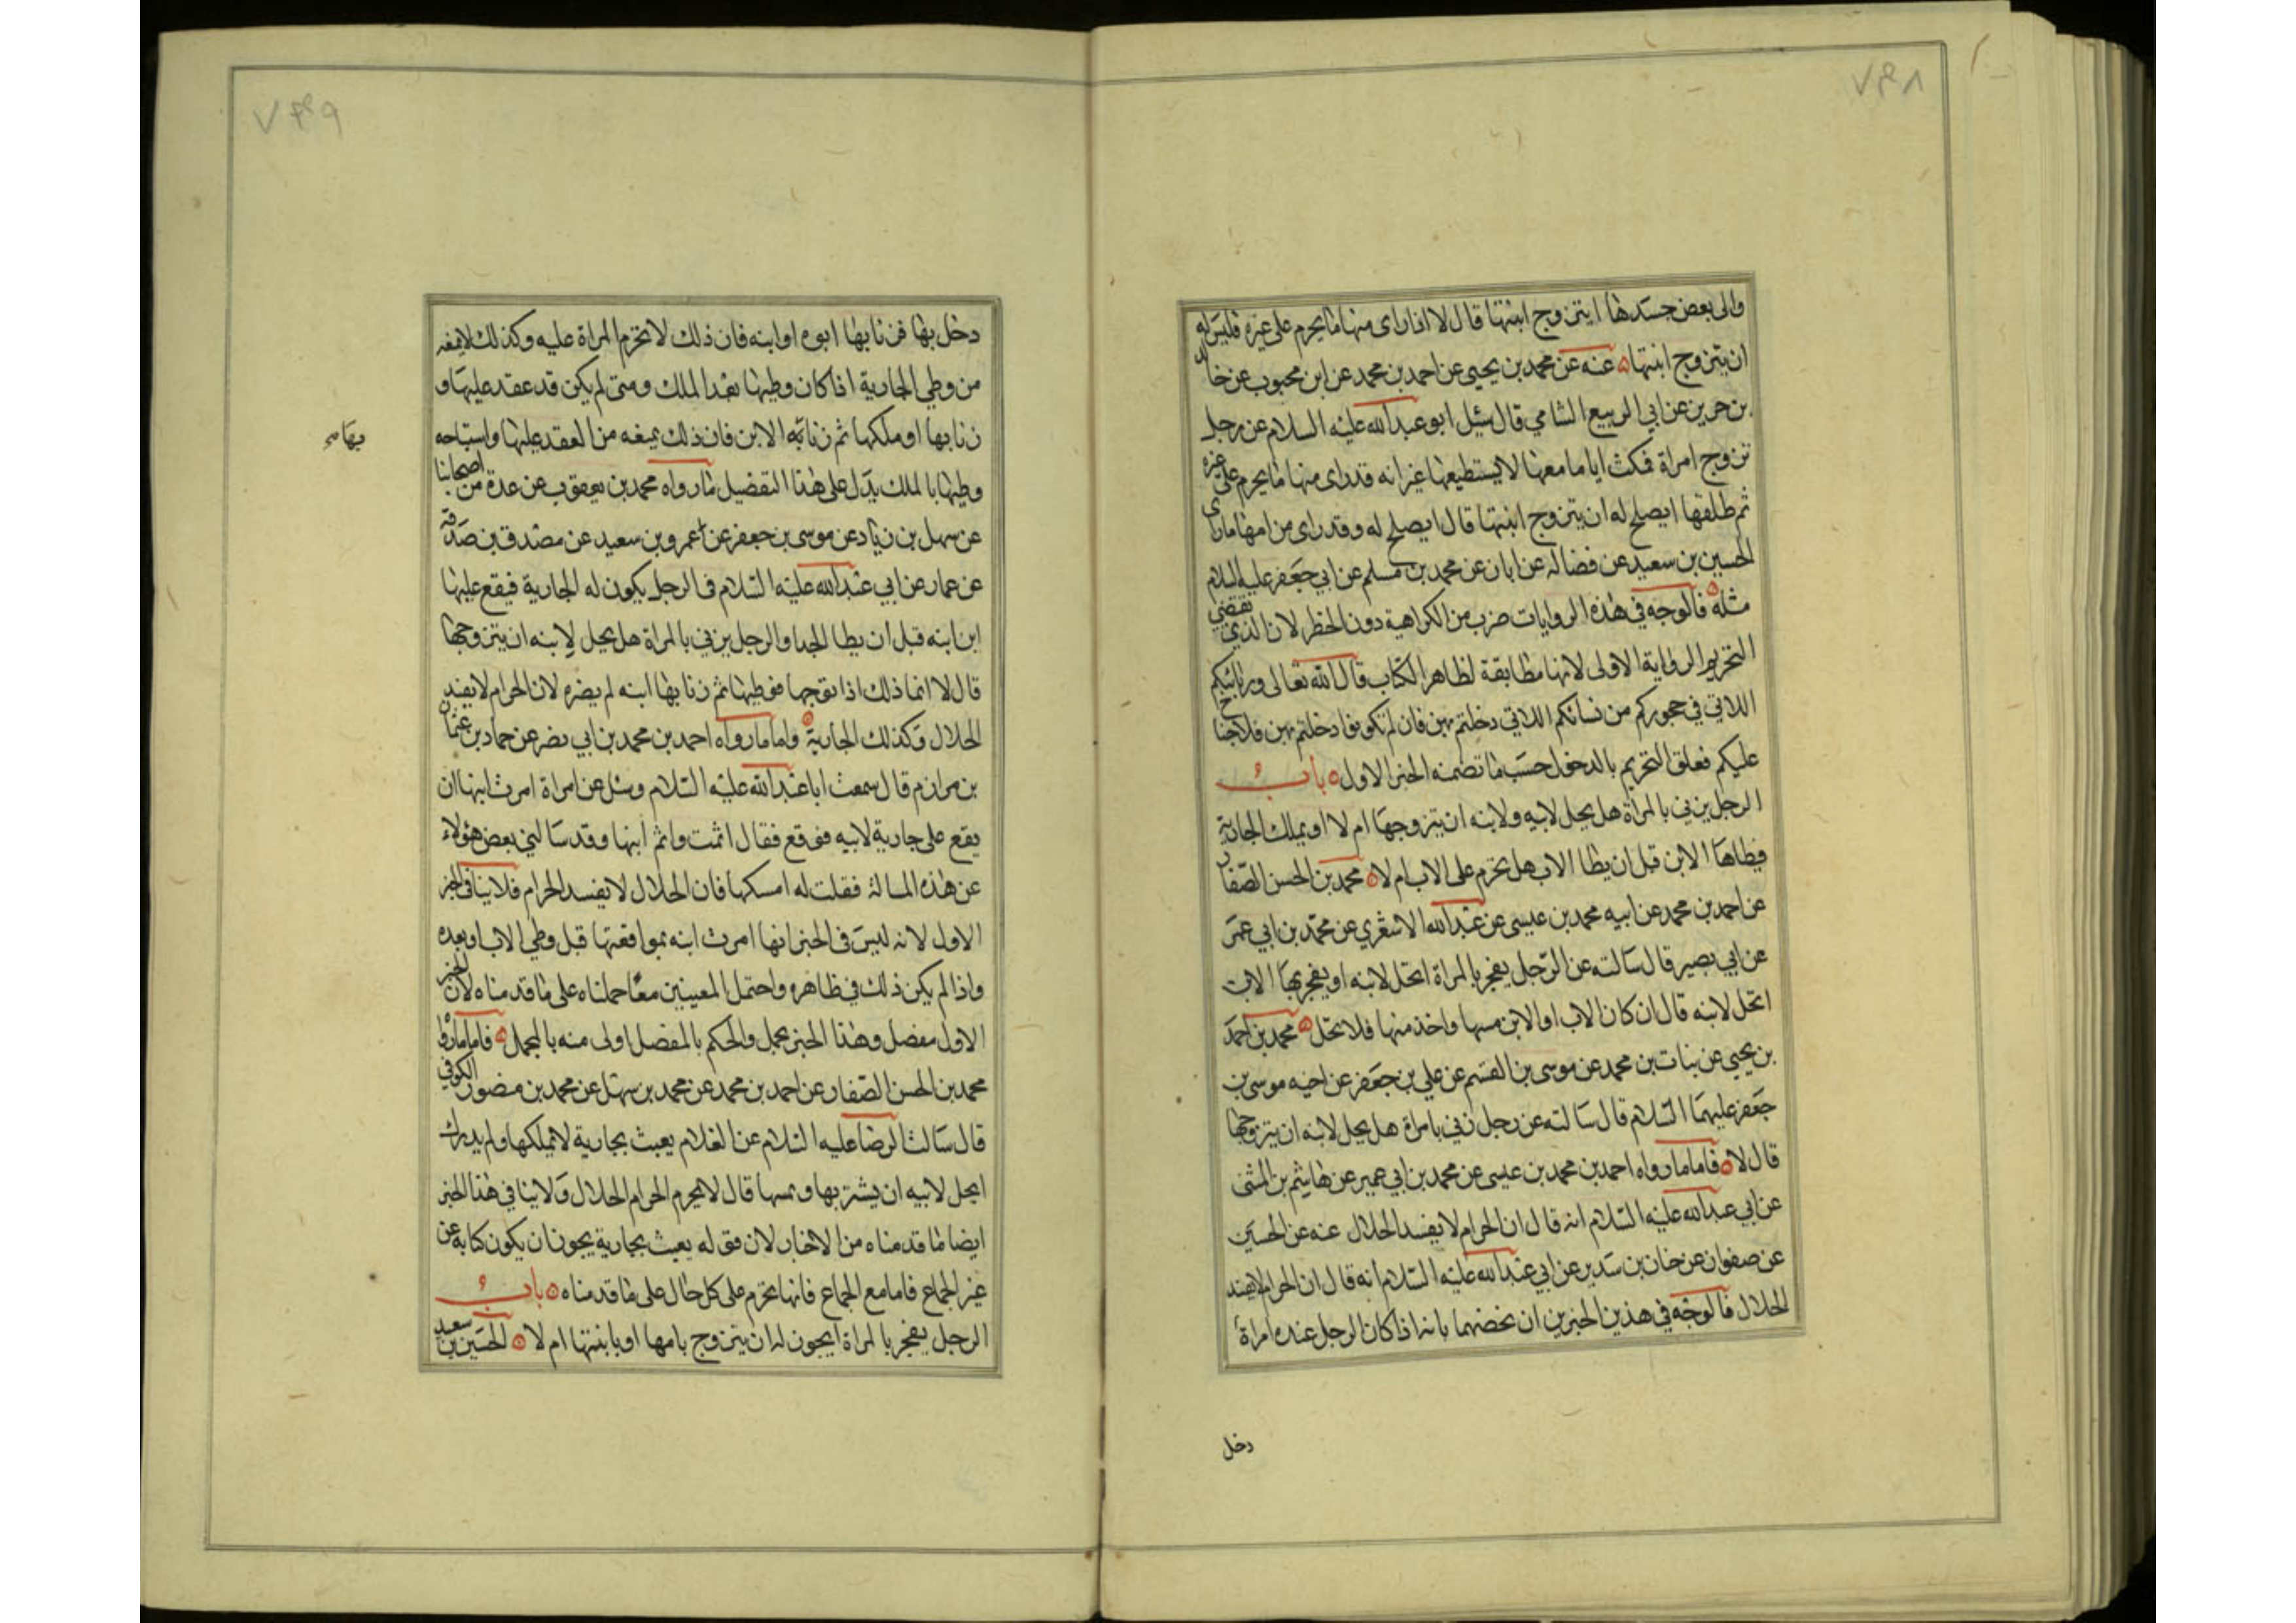 ٧٣٨
والى بعض جسدها ايتزوج ابنتها قال لا اذا راى منها ما يحرم على غيره فليس له
ان يتزوج ابنتها عنه عن محمد بن يحيى عن احمد بن محمد عن ابن محبوب عن خالد
بن حريز عن ابي الربيع الشامي قال سئل ابو عبد الله عليه السلام عن رجل
تزوج امراة فمكث اياما معها لا يستطيعها غير انه قد راى منها ما يحرم على غيره
ثم طلقها ايصلح له ان يتزوج ابنتها قال ايصلح له وقد راى من امها ما راى
الحسين بن سعيد عن فضالة عن ابان عن محمد بن مسلم عن ابي جعفر عليه السلام
مثله فالوجه في هذه الروايات ضرب من الكراهية دون الحظر لان الذي يقتضي
التحريم الرواية الاولى لانها مطابقة لظاهر الكتاب قال الله تعالى وربائبكم
اللاتي في حجوركم من نسائكم اللاتي دخلتم بهن فان لم تكونوا دخلتم بهن فلا جناح
عليكم فعلق التحريم بالدخول حسب ما تضمنه الخبر الاول باب
الرجل يزني بالمراة هل يحل لابيه ولابنه ان يتزوجها ام لا او يملك الجارية
فيطاها الابن قبل ان يطا الاب هل تحرم على الاب ام لا محمد بن الحسن الصفار
عن احمد بن محمد عن ابيه محمد بن عيسى عن عبد الله الاشعري عن محمد بن ابي عمير
عن ابي بصير قال سالته عن الرجل يفجر بالمراة اتحل لابنه او يفجر بها الابن
اتحل لابنه قال ان كان الاب او الابن مسها واخذ منها فلا تحل محمد بن احمد
بن يحيى عن بنات بن محمد عن موسى بن القسم عن علي بن جعفر عن اخيه موسى بن
جعفر عليهما السلام قال سالته عن رجل زنى بامراة هل يحل لابنه ان يتزوجها
قال لا فاما ما رواه احمد بن محمد بن عيسى عن محمد بن ابي عمير عن هاشم بن المثنى
عن ابي عبد الله عليه السلام انه قال ان الحرام لا يفسد الحلال عنه عن الحسين
عن صفوان عن حنان بن سدير عن ابي عبد الله عليه السلام انه قال ان الحرام لا يفسد
الحلال فالوجه في هذين الخبرين ان نخصهما بانه اذا كان الرجل عنده امراة
دخل
٧٣٩
دخل بها فزنا بها ابوه او ابنه فان ذلك لا تحرم المراة عليه وكذلك لا يمنعه
من وطي الجارية اذا كان وطيها بعد الملك ومتى لم يكن قد عقد عليها و
زنا بها او ملكها ثم زنا به الابن فان ذلك يمنعه من العقد عليها واستباحه
بها
وطيها بالملك يدل على هذا التفضيل ما رواه محمد بن يعقوب عن عدة من اصحابنا
عن سهل بن زياد عن موسى بن جعفر عن عمرو بن سعيد عن مصدق بن صدقة
عن عمار عن ابي عبد الله عليه السلام في الرجل يكون له الجارية فيقع عليها
ابن ابنه قبل ان يطا الجد او الرجل يزني بالمراة هل يحل لابنه ان يتزوجها
قال لا انما ذلك اذا تزوجها فوطيها ثم زنا بها ابنه لم يضره لان الحرام لا يفسد
الحلال وكذلك الجارية واما ما رواه احمد بن محمد بن ابي نصر عن حماد بن عثمان
بن مرازم قال سمعت ابا عبد الله عليه السلام وسئل عن امراة امرت ابنها ان
يقع على جارية لابيه فوقع فقال اثمت واثم ابنها وقد سالني بعض هؤلاء
عن هذه المسالة فقلت له امسكها فان الحلال لا يفسد الحرام فلا ينافي الخبر
الاول لانه ليس في الخبر انها امرت ابنه بمواقعتها قبل وطي الاب او بعده
واذا لم يكن ذلك في ظاهره واحتمل المعنيين معا حملناه على ما قدمناه لان الخبر
الاول مفصل وهذا الخبر مجمل والحكم بالمفصل اولى منه بالمجمل فاما ما رواه
محمد بن الحسن الصفار عن احمد بن محمد عن محمد بن سهل عن محمد بن منصور الكوفي
قال سالت الرضا عليه السلام عن الغلام يعبث بجارية لا يملكها ولم يدرك
ايحل لابيه ان يشتريها ويمسها قال لا يحرم الحرام الحلال ولا ينافي هذا الخبر
ايضا لما قدمناه من الاخبار لان قوله يعبث بجارية يجوز ان يكون كناية عن
غير الجماع فاما مع الجماع فانها تحرم على كل حال على ما قدمناه باب
الرجل يفجر بالمراة ايجوز له ان يتزوج بامها او بابنتها ام لا الحسين بن سعيد